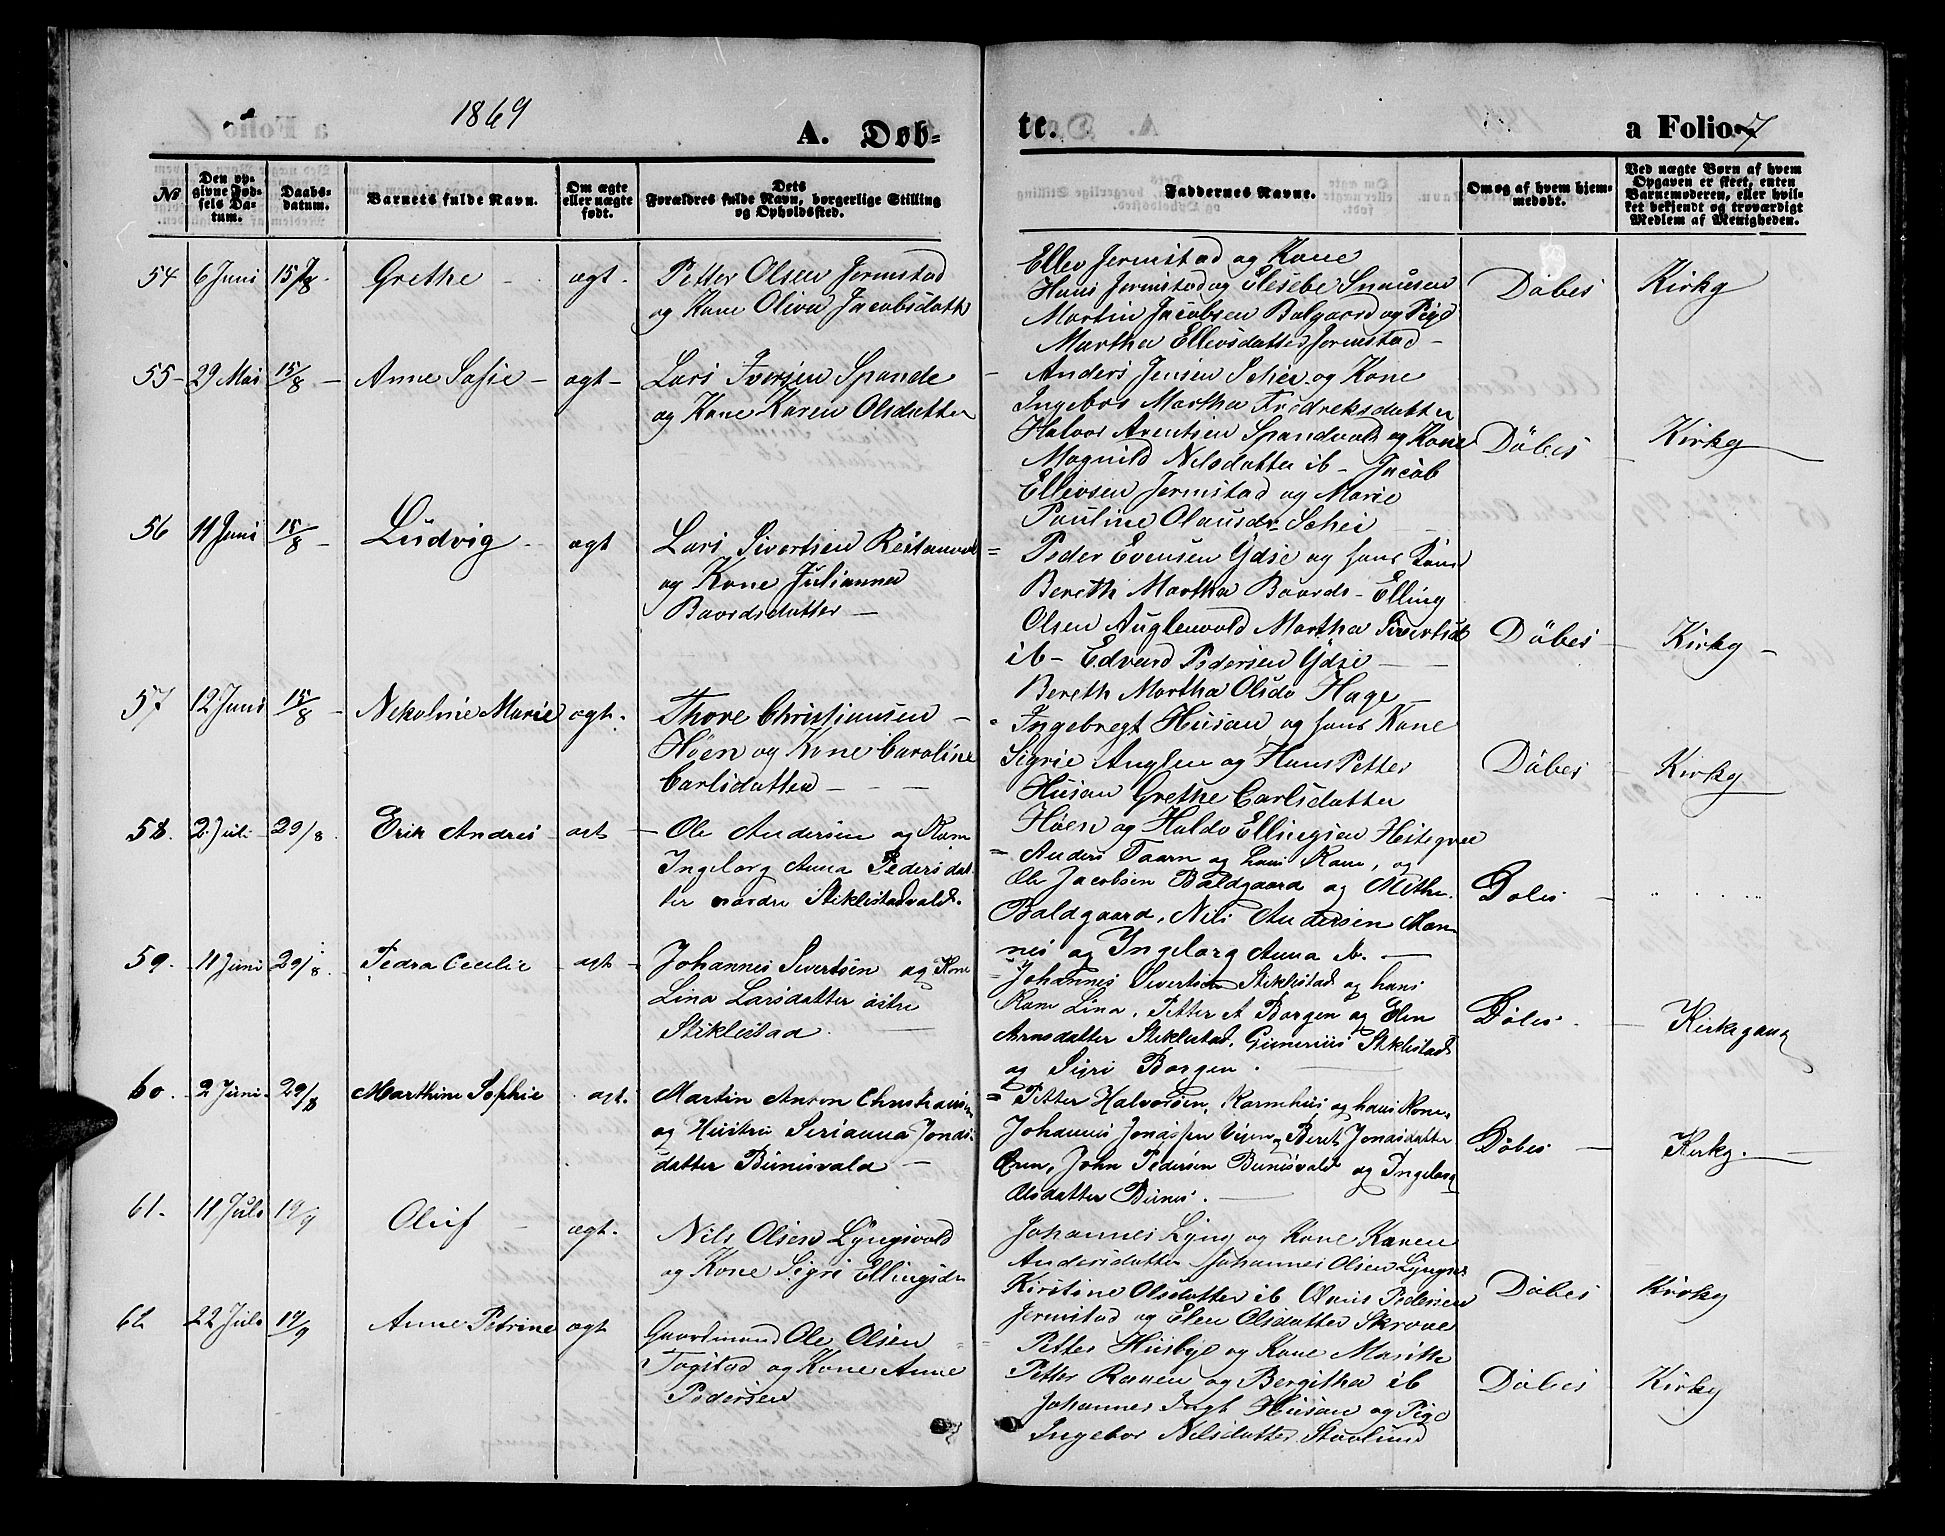 1869
A. Døb=
te.
a Folio 7
No
Den op-
givne Fød-
sels Da-
tum.
Daabs-
datum.
Barnets fulde Navn.
Om ægte
eller uægte
født.
Dets
Forældres fulde Navn, borgerlige Stilling
og Opholdssted.
Faddernes Navne.
Om og af hvem hjem-
medøbt.
Ved uægte Børn af hvem
Opgaven er skeet, enten
Barnemoderen, eller hvil-
ket bekjendt og troværdigt
Medlem af Menigheden.
54 6 Juni 15/8 - Grethe - ægt -
Petter Olsen Jermstad
og Kone Oliva Jacobsdatter
Ellev Jermstad og Kone
Hans Jermstad og Elesebe Snausen
Martin Jacobsen Balgaard og Pige
Martha Ellevsdatter Jermstad -
Döbes Kirkg
55 - 29 Mai 15/8 - Anne Sofie - ægt -
Lars Iversen Spande
og Kone Karen Olsdatter
- Anders Jensen Schei og Kone
Ingebor Martha Fredreksdatter
Halvor Arentsen Spandvold og Kone
Magnild Nilsdatter ib - Jacob
Ellevsen Jermstad og Marie
Pauline Olausdr Schei
Döbes - Kirkg
56 11 Juni 15/8 - Ludvig - ægt
Lars Sivertsen Reitanvold
og Kone Julianna
Baardsdatter -
= Peder Evensen Ydse og hans Kone
Bereth Martha Baards - Elling
Olsen Auglenvold Martha Sivertsdr
ib - Edvard Pedersen Ydse -
Bereth Martha Olsdr Hage -
Döbes - Kirkg -
57 12 Juni 15/8 - Nekoline Marie ægt.
Thore Christiansen -
Höen og Kone Caroline
Carlsdatter -
Ingebregt Husan og hans Kone
Sigrie Auglen og Hans Petter
Husan Grethe Carlsdatter
Höen og Haldo Ellingsen
Döbes - Kirkg
58. 2 Juli 29/8. Erik Andreas ægt -
Ole Andersen og Kone
Ingeborg Anna Pedersdat-
ter nordre Stiklestadvald.
= Anders Taarn og hans Kone, og
Ole Jacobsen Baldgaard og Methe
Baldgaard, Nils Andersen Mæn-
nes og Ingeborg Anna ib. -
Döbes - " "
59. 11 Juni 29/8. Pedra Cecelie ægt -
Johannes Sivertsen og Kone
Lina Larsdatter östre
Stiklestad.
- Johannes Sivertsen Stiklestad og hans
Kone Lina, Petter A Borgen og Elen
Arnsdatter Stiklestad, Gunerius Stiklestad
og Sigri Borgen.
Döbes. - Kirkegang
60. 2 Juni. 29/8 Marthine Sophie ægt.
Martin Anton Christiansen
og Hustru Serianna Jonas-
datter Bunesvald -
= Petter Halvorsen, Karmhus og hans Kone,
Johannes Jonassen Vigen, Beret Jonasdatter
John Pedersen Bunesvald og Ingeborg
Olsdatter Bunes. -
Döbes - Kirkg. -
61. 11 Juli 19/9 Oluf - ægt.
Nils Olsen Lyngsvold
og Kone Sigri Ellingsdr
Johannes Lyng og Kone Karen
Andersdatter Johannes Olsen Lyngsv
Kirstine Olsdatter ib Pedersen
Jermstad og Elen Olsdatter Skrove
Döbes Kirkg
62 22 Juli 19/9 Anne Petrine ægt
Gaardmand Ole Olsen -
Tøgstad og Kone Anne
Pedersen
= Petter Husbye og Kone Marith
Petter Ranen og Bergitha ib
Johannes Ingt Husan og Pige
Ingebor Nilsdatter Stavlund
Döbes Kirkg